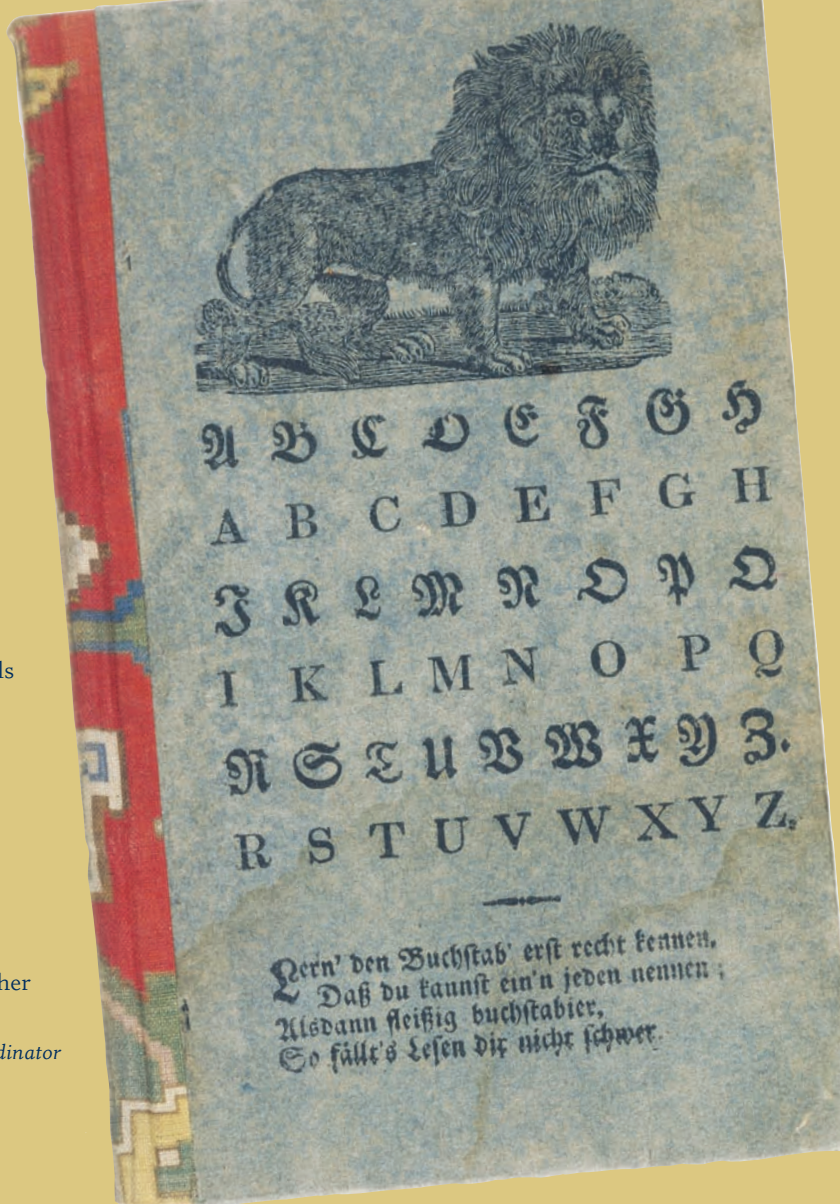 𝔄 𝔅 ℭ 𝔇 𝔈 𝔉 𝔊 ℌ
A B C D E F G H
ℑ 𝔎 𝔏 𝔐 𝔑 𝔒 𝔓 𝔔
I K L M N O P Q
ℜ 𝔖 𝔗 𝔘 𝔙 𝔚 𝔛 𝔜 ℨ.
R S T U V W X Y Z.
Lern' den Buchſtab' erſt recht kennen,
Daß du kannſt ein'n jeden nennen;
Alsdann fleißig buchſtabier,
So fällt's Leſen dir nicht ſchwer.
ls
her
dinator